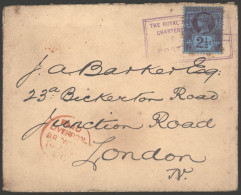 THE ROYAL
CHARTERED
2½
J. A. Barker Esq:
23a Bickerton Road
Junction Road
London
N.
PAID
LIVERPOOL